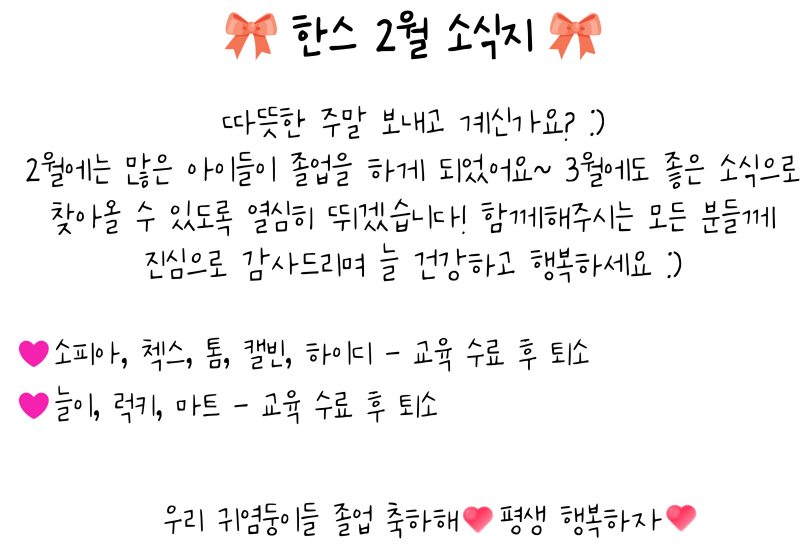 🎀 한스 2월 소식지 🎀
따뜻한 주말 보내고 계신가요? :)
2월에는 많은 아이들이 졸업을 하게 되었어요~ 3월에도 좋은 소식으로
찾아올 수 있도록 열심히 뛰겠습니다! 함께해주시는 모든 분들께
진심으로 감사드리며 늘 건강하고 행복하세요 :)
♥소피아, 첵스, 톰, 캘빈, 하이디 - 교육 수료 후 퇴소
♥늘이, 럭키, 마트 - 교육 수료 후 퇴소
우리 귀염둥이들 졸업 축하해♥평생 행복하자♥